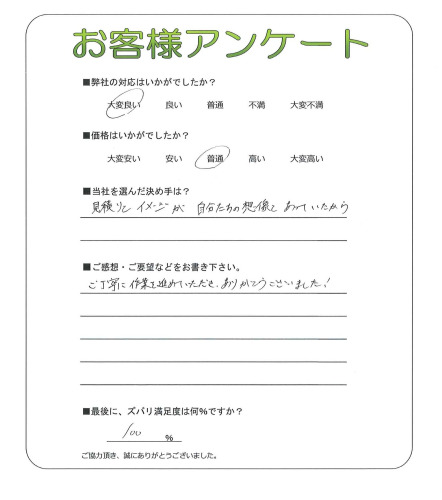 お客様アンケート
■弊社の対応はいかがでしたか？
大変良い 良い 普通 不満 大変不満
■価格はいかがでしたか？
大変安い 安い 普通 高い 大変高い
■当社を選んだ決め手は？
見積りとイメージが 自分たちの想像と あっていたから
■ご感想・ご要望などをお書き下さい。
ご丁寧に作業を進めていただき、ありがとうございました！
■最後に、ズバリ満足度は何％ですか？
100 ％
ご協力頂き、誠にありがとうございました。